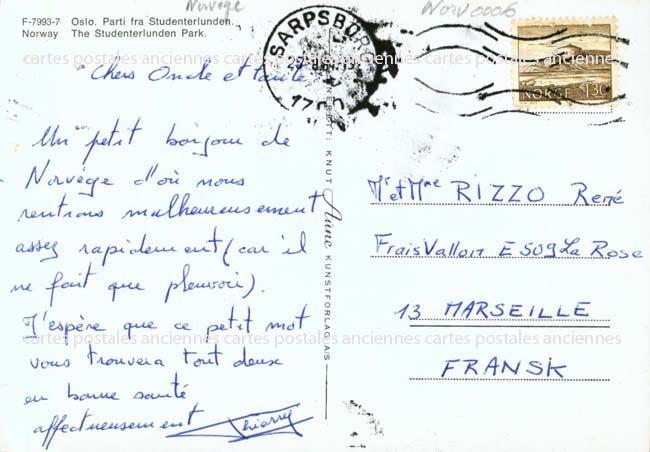 Norvège
Norv0006
F-7993-7 Oslo. Parti fra Studenterlunden.
Norway The Studenterlunden Park.
SARPSBORG
1700
NORGE 130
Chers Oncle et tante
Un petit bonjour de
Norvège d'où nous
rentrons malheureusement
assez rapidement (car il
ne fait que pleuvoir).
J'espère que ce petit mot
vous trouvera tout deux
en bonne santé
affectueusement Thierry
KNUT Aune KUNSTFORLAG A/S
Mr et Mme RIZZO René
Frais Vallon E 509 La Rose
13 MARSEILLE
FRANSK
cartes postales anciennes cartes postales anciennes cartes postales anciennes
cartes postales anciennes cartes postales anciennes cartes postales anciennes